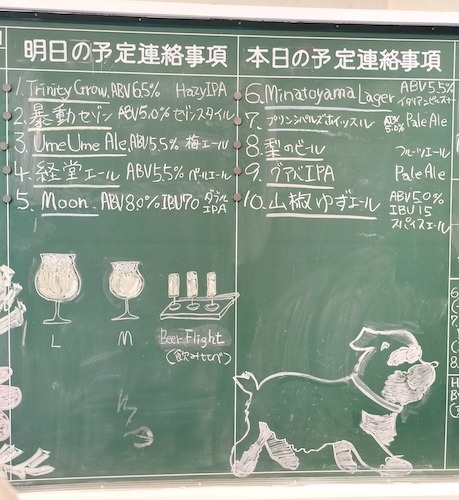 明日の予定連絡事項
1. Trinity Grow. ABV6.5% HazyIPA
2. 暴動セゾン ABV5.0% セゾンスタイル
3. UmeUme Ale, ABV5.5% 梅エール
4. 経堂エール ABV5.5% ペールエール
5. Moon. ABV8.0% IBU70 ダブルIPA
L
M
Beer Flight
(飲みくらべ)
本日の予定連絡事項
6. Minatoyama Lager ABV5.5%
イタリアンピルスナー
7. プリンシパルズホイッスル ABV 5.0% Pale Ale
8. 梨のビール フルーツエール
9. グアバIPA Pale Ale
10. 山椒ゆずエール ABV5.0%
IBU15
スパイスエール